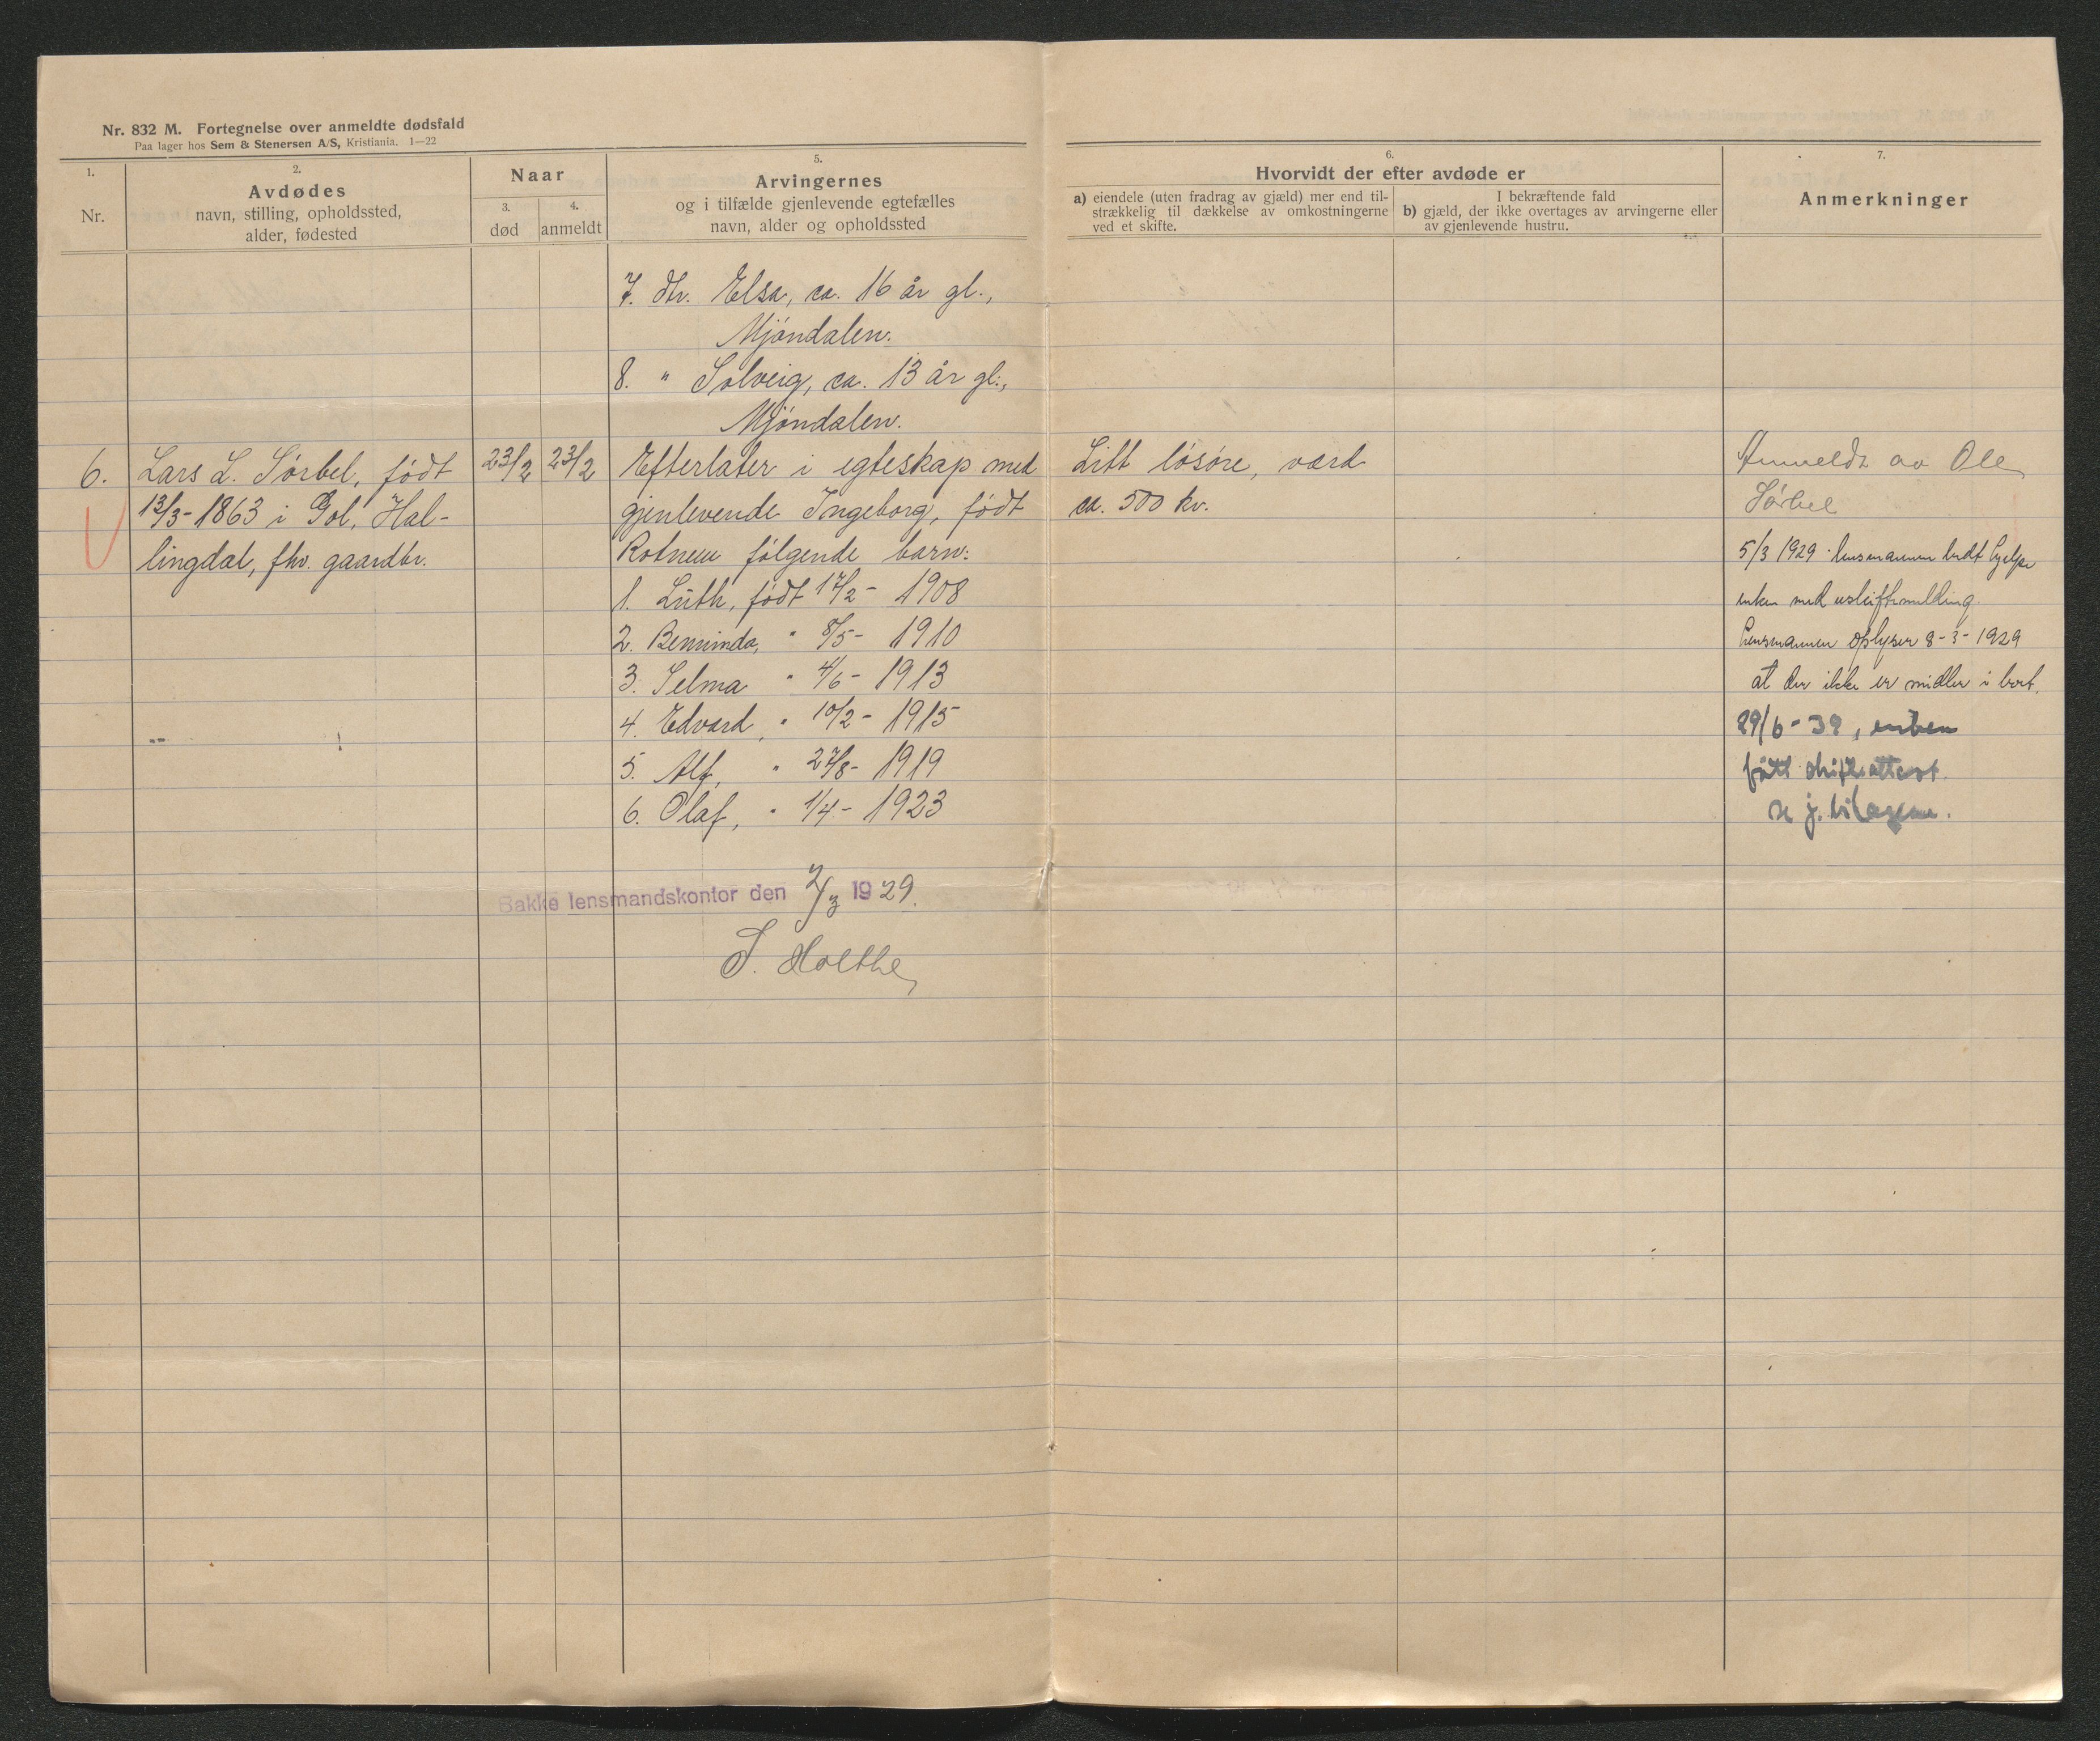 Nr. 832 M. Fortegnelse over anmeldte dødsfald
Paa lager hos Sem & Stenersen A/S, Kristiania. 1—22
1.
Nr.
2.
Avdødes
navn, stilling, opholdssted,
alder, fødested
Naar
3.
død
4.
anmeldt
5.
Arvingernes
og i tilfælde gjenlevende egtefælles
navn, alder og opholdssted
6.
Hvorvidt der efter avdøde er
a) eiendele (uten fradrag av gjæld) mer end til-
strækkelig til dækkelse av omkostningerne
ved et skifte.
I bekræftende fald
b) gjæld, der ikke overtages av arvingerne eller
av gjenlevende hustru.
7.
Anmerkninger
7. dtr. Elsa, ca. 16 år gl.,
Mjöndalen.
8. " Solveig, ca. 13 år gl.,
Mjöndalen.
6.
Lars L. Sörbel, født
13/3-1863 i Gol, Hal-
lingdal, fhv. gaardbr.
23/2
23/2
Efterlater i egteskap med
gjenlevende Ingeborg, født
Rotneim følgende barn:
1. Luth, født 17/2 - 1908
2. " 8/5 - 1910
3. Selma " 4/6 - 1913
4. Edvard, " 10/2 - 1915
5. Alf, " 27/8 - 1919
6. Olaf, " 1/4 - 1923
Litt lösöre, værd
ca. 500 kr.
Anmeldt av Ole
Sörbel
5/3 1929 lensmannen bedt hjelpe
enken med uskiftemelding.
Lensmannen oplyser 8-3-1929
at der ikke er midler i boet.
29/6-39, enken
fått skifteattest
se j. bilagene.
Bakke lensmandskontor den 2/3 1929.
S. Holthe